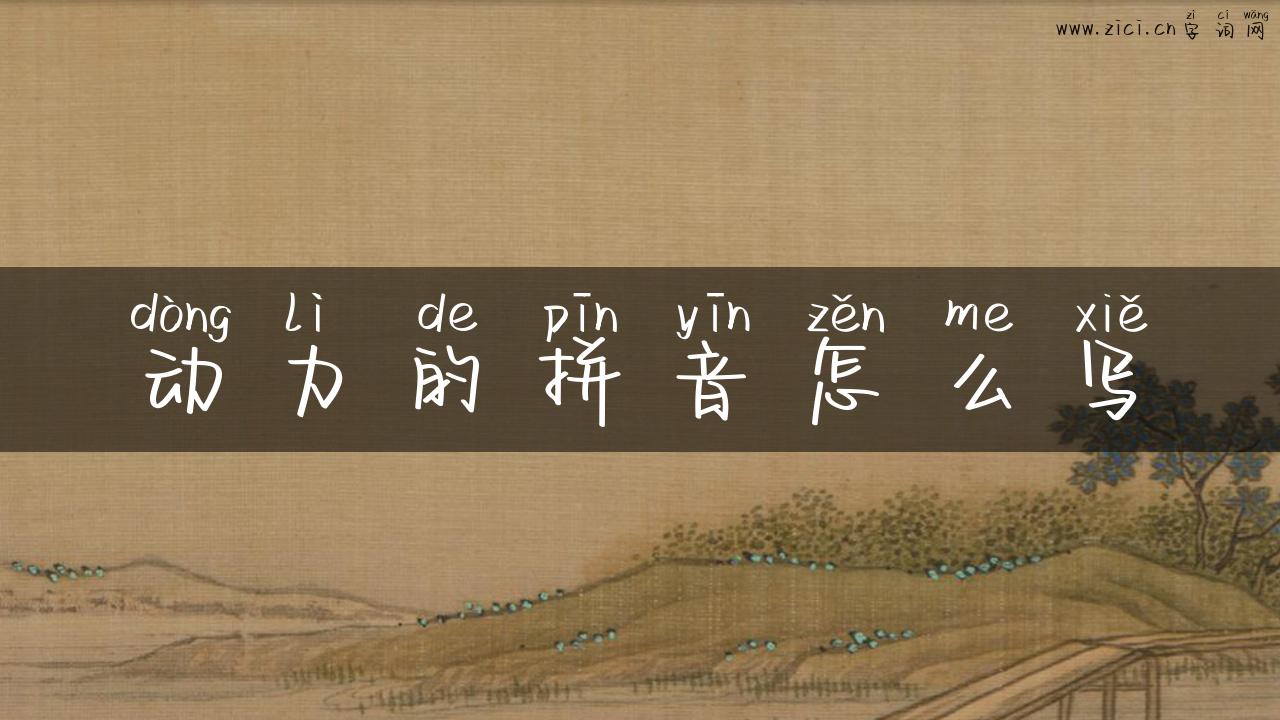 zì cí wǎng
www.zici.cn字词网
dòng lì de pīn yīn zěn me xiě
动力的拼音怎么写